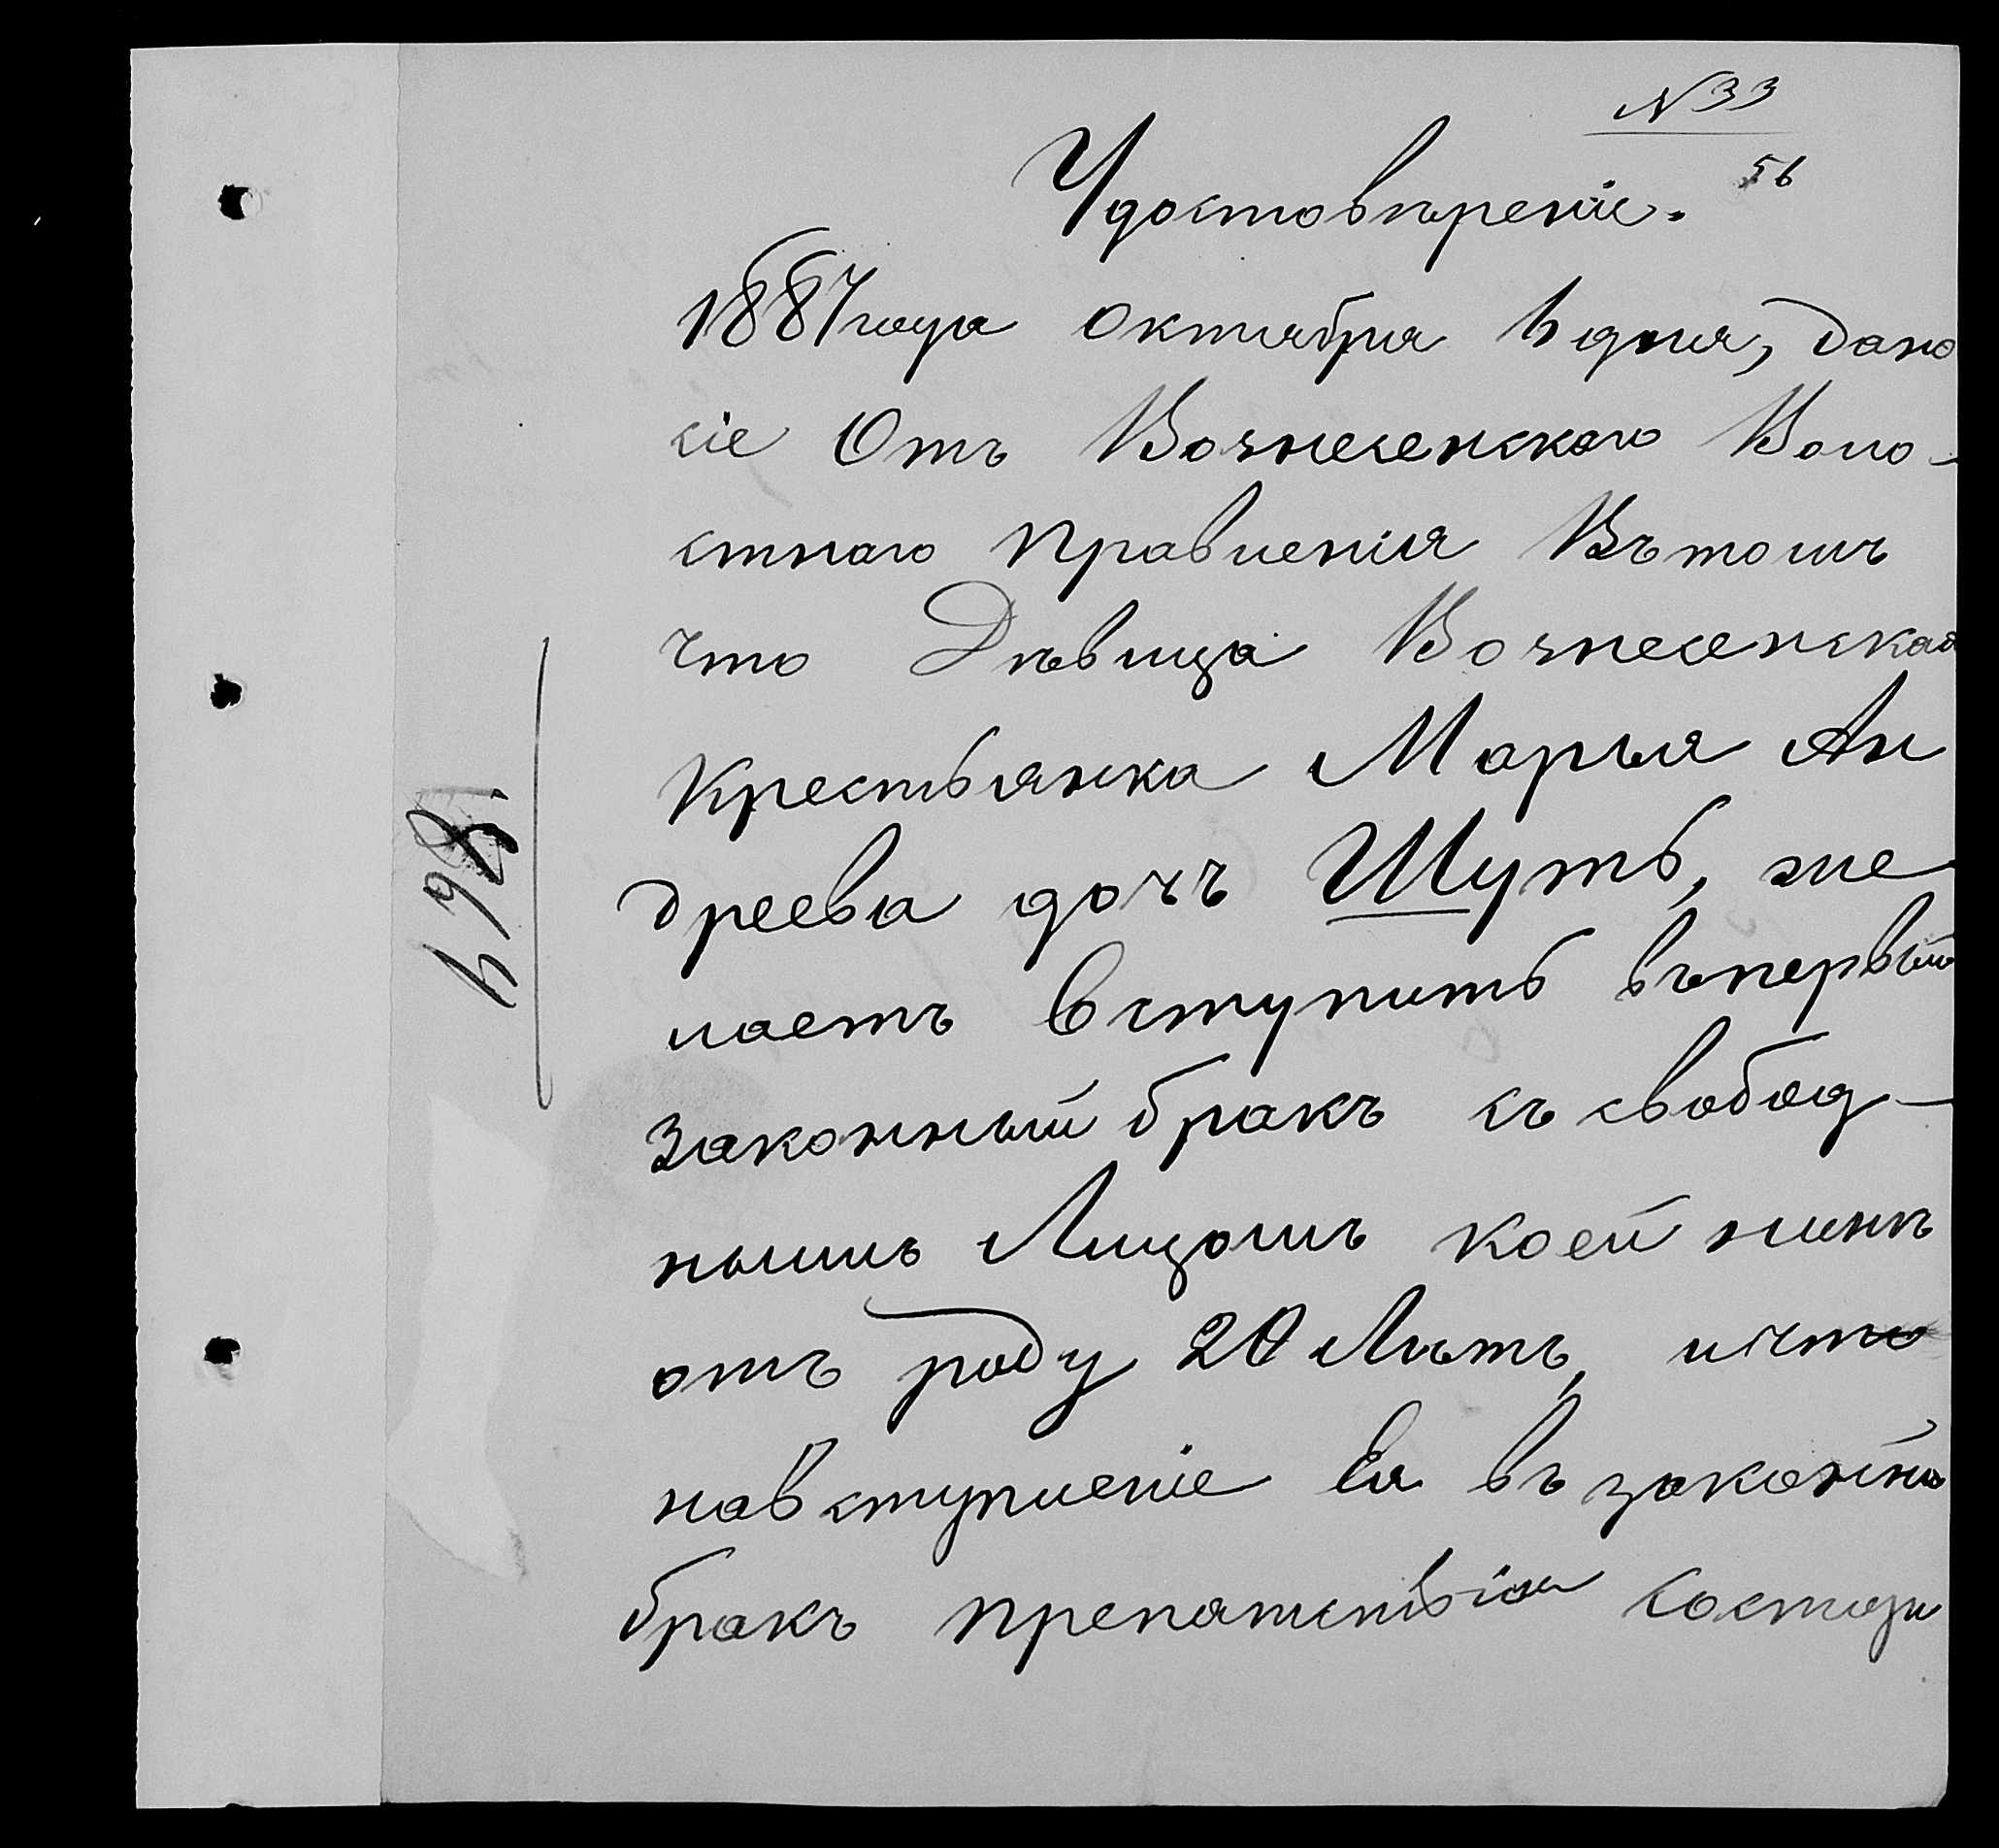 N 33
56
Удостовѣреніе.
1887 года октября 6 дня, дано
сіе Отъ Вознесенскаго Воло-
стнаго правленія Въ томъ
что Дѣвица Вознесенская
крестьянка Марья Ан
дреева дочъ Шуть, же
лаетъ вступить въ первый
законный бракъ съ свобод-
нымъ Лицомъ коей нынѣ
отъ роду 20 Лѣтъ, и что
на вступленіе Ея въ законны
бракъ препятствія